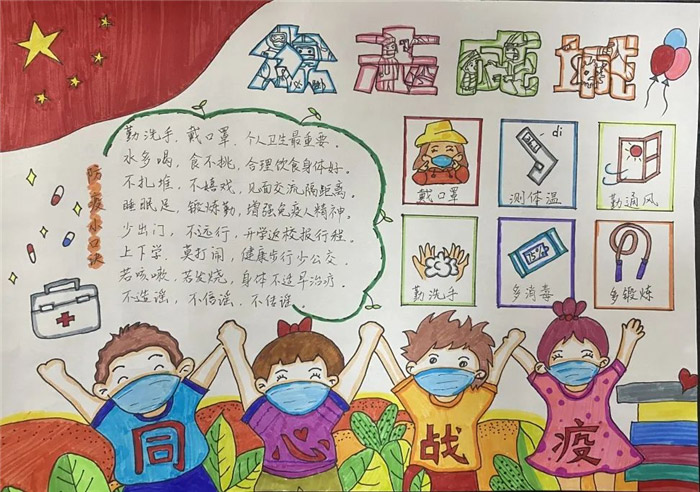 众志成城
防疫小口诀
勤洗手，戴口罩，个人卫生最重要。
水多喝，食不挑，合理饮食身体好。
不扎堆，不嬉戏，见面交流隔距离。
睡眠足，锻炼勤，增强免疫人精神。
少出门，不远行，开学返校报行程。
上下学，莫打闹，健康步行少公交。
若咳嗽，若发烧，身体不适早治疗。
不造谣，不信谣，不传谣。
di
戴口罩
测体温
勤通风
75%
勤洗手
多消毒
多锻炼
同心战疫